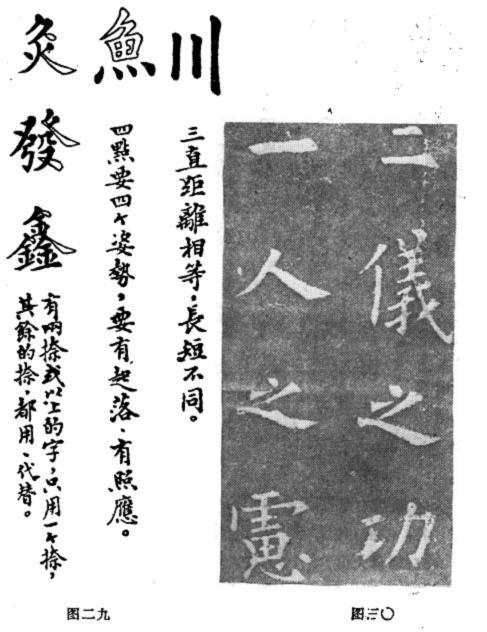 川
三直距離相等,長短不同。
魚
四點要四个姿勢,要有起落、有照應。
灸
發
鑫
有兩捺或以上的字,只用一个捺,
其餘的捺,都用丶代替。
图二九
二儀之功
一人之
图三〇